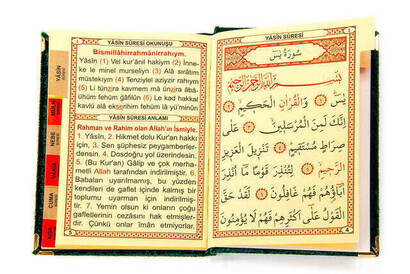 YÂSÎN SÛRESİ OKUNUŞU
Bismillâhirrahmânirrahîym.
Yâsîn (1) Vel kur'ânil hakiym (2) İnne-
ke le minel murseliyn (3) Alâ sırâtım
müstekıym (4) Tenziylel azîzir rahıym
(5) Li tünzira kavmem mâ ünzira âbâ-
ühüm fehüm ğâfilûn (6) Le kad hakkal
kavlü alâ ekserihim fehüm lâ yü'minûn
YÂSÎN SÛRESİ ANLAMI
Rahman ve Rahim olan Allah'ın İsmiyle.
1. Yâsîn, 2. Hikmet dolu Kur'an hakkı
için, 3. Sen şüphesiz peygamberler-
densin. 4. Dosdoğru yol üzerindesin.
5. (Bu Kur'an) Gâlip ve çok merha-
metli Allah tarafından indirilmiştir. 6.
Babaları uyarılmamış, bu yüzden
kendileri de gaflet içinde kalmış bir
toplumu uyarman için indirilmiştir.
7. Yemin olsun ki onların çoğu
gafletlerinin cezasını hak etmişler-
dir. Çünkü onlar îman etmiyorlar.
YÂSİN
MÜLK
NEBE
VAKIA
CUMA
YÂSÎN SÛRESİ
سُورَةُ يٰسٓ
بِسْمِ اللّٰهِ الرَّحْمٰنِ الرَّحِيمِ
يٰسٓ ۝ وَالْقُرْاٰنِ الْحَكِيمِ ۝
اِنَّكَ لَمِنَ الْمُرْسَلِينَ ۝ عَلٰى
صِرَاطٍ مُسْتَقِيمٍ ۝ تَنْزِيلَ الْعَزِيزِ
الرَّحِيمِ ۝ لِتُنْذِرَ قَوْمًا مَٓا اُنْذِرَ
اٰبَٓاؤُهُمْ فَهُمْ غَافِلُونَ ۝ لَقَدْ حَقَّ
الْقَوْلُ عَلٰٓى اَكْثَرِهِمْ فَهُمْ لَا يُؤْمِنُونَ